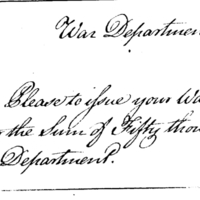 War Departmen
Please to issue your Wa
the Sum of Fifty thou
Department.